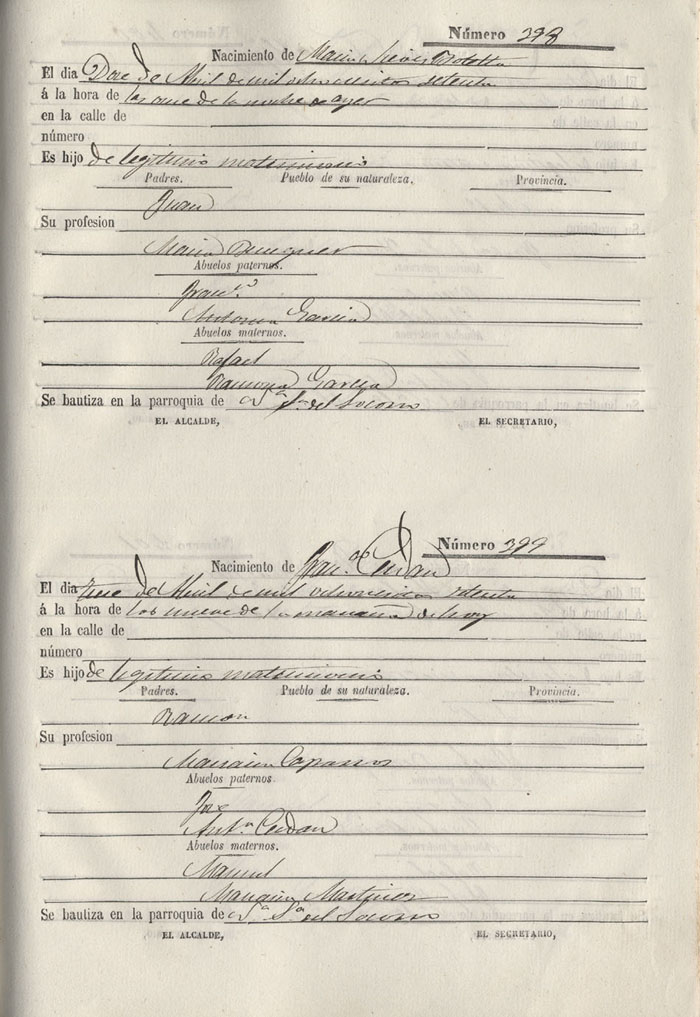 Número 398
Nacimiento de Maria
El dia Doce de Abril de mil ochocientos setenta
á la hora de las once de la noche de ayer
en la calle de
número
Es hijo de legitimo matrimonio
Padres. Pueblo de su naturaleza. Provincia.
Juan
Su profesion
Maria
Abuelos paternos.
Franco
Antonia Garcia
Abuelos maternos.
Rafael
Ramona Garcia
Se bautiza en la parroquia de Na Sa del Socorro
EL ALCALDE, EL SECRETARIO,
Número 399
Nacimiento de Franco Cerdan
El dia trece de Abril de mil ochocientos setenta
á la hora de las nueve de la mañana de hoy
en la calle de
número
Es hijo de legitimo matrimonio
Padres. Pueblo de su naturaleza. Provincia.
Ramon
Su profesion
Mariana Caparros
Abuelos paternos.
Jose
Anta Cerdan
Abuelos maternos.
Manuel
Mariana Martinez
Se bautiza en la parroquia de Na Sa del Socorro
EL ALCALDE, EL SECRETARIO,